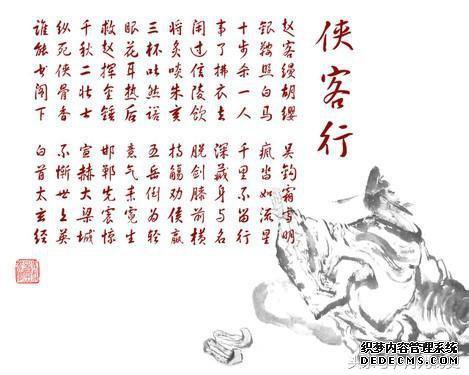 侠客行
赵客缦胡缨 吴钩霜雪明
银鞍照白马 飒沓如流星
十步杀一人 千里不留行
事了拂衣去 深藏身与名
闲过信陵饮 脱剑膝前横
将炙啖朱亥 持觞劝侯嬴
三杯吐然诺 五岳倒为轻
眼花耳热后 意气素霓生
救赵挥金锤 邯郸先震惊
千秋二壮士 宣赫大梁城
纵死侠骨香 不惭世上英
谁能书阁下 白首太玄经
织梦内容管理系统
DEDECMS.COM